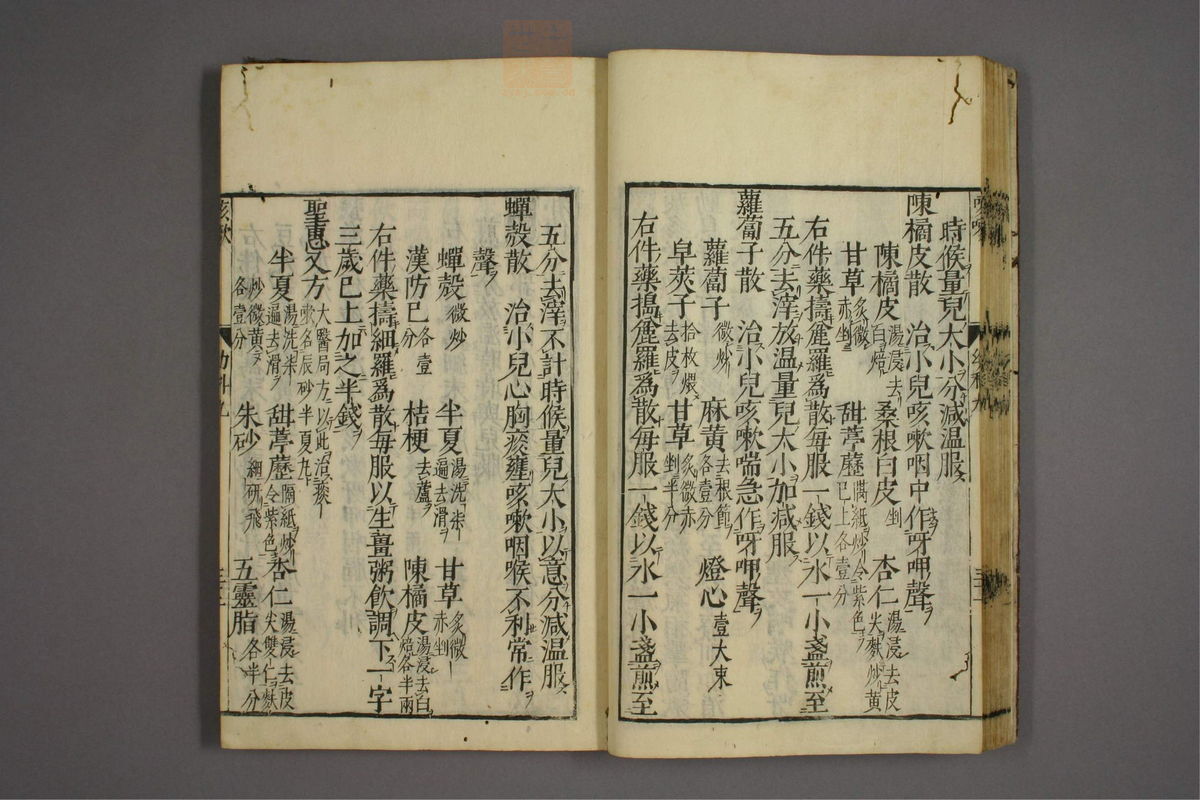 時候量兒大小分減温服
陳橘皮散　治小兒咳嗽咽中作呀呷聲
陳橘皮湯浸去白焙　桑根白皮剉　杏仁湯浸去皮尖麩炒黄
甘草炙微赤剉　甜葶藶隔紙炒令紫色已上各壹分
右件藥擣麄羅爲散每服一錢以水一小盞煎至
五分去滓放温量兒大小加減服
蘿蔔子散　治小兒咳嗽喘急作呀呷聲
蘿蔔子微炒　麻黄去根節各壹分　燈心壹大束
皁莢子拾枚煨去皮　甘草炙微赤剉半分
右件藥擣麄羅爲散每服一錢以水一小盞煎至
五分去滓不計時候量兒大小以意分減温服
蟬殼散　治小兒心胸痰壅咳嗽咽喉不利常作
聲
蟬殼微炒　半夏湯洗柒遍去滑　甘草炙微赤剉
漢防已各壹分　桔梗去蘆　陳橘皮湯浸去白焙各半兩
右件藥擣細羅爲散每服以生薑粥飲調下一字
三歲已上加之半錢
聖惠又方太醫局方以此治痰嗽名辰砂半夏丸
半夏湯洗柒遍去滑　甜葶藶隔紙炒令紫色　杏仁湯浸去皮尖雙仁麩
炒微黄各壹分　朱砂細研飛　五靈脂各半分